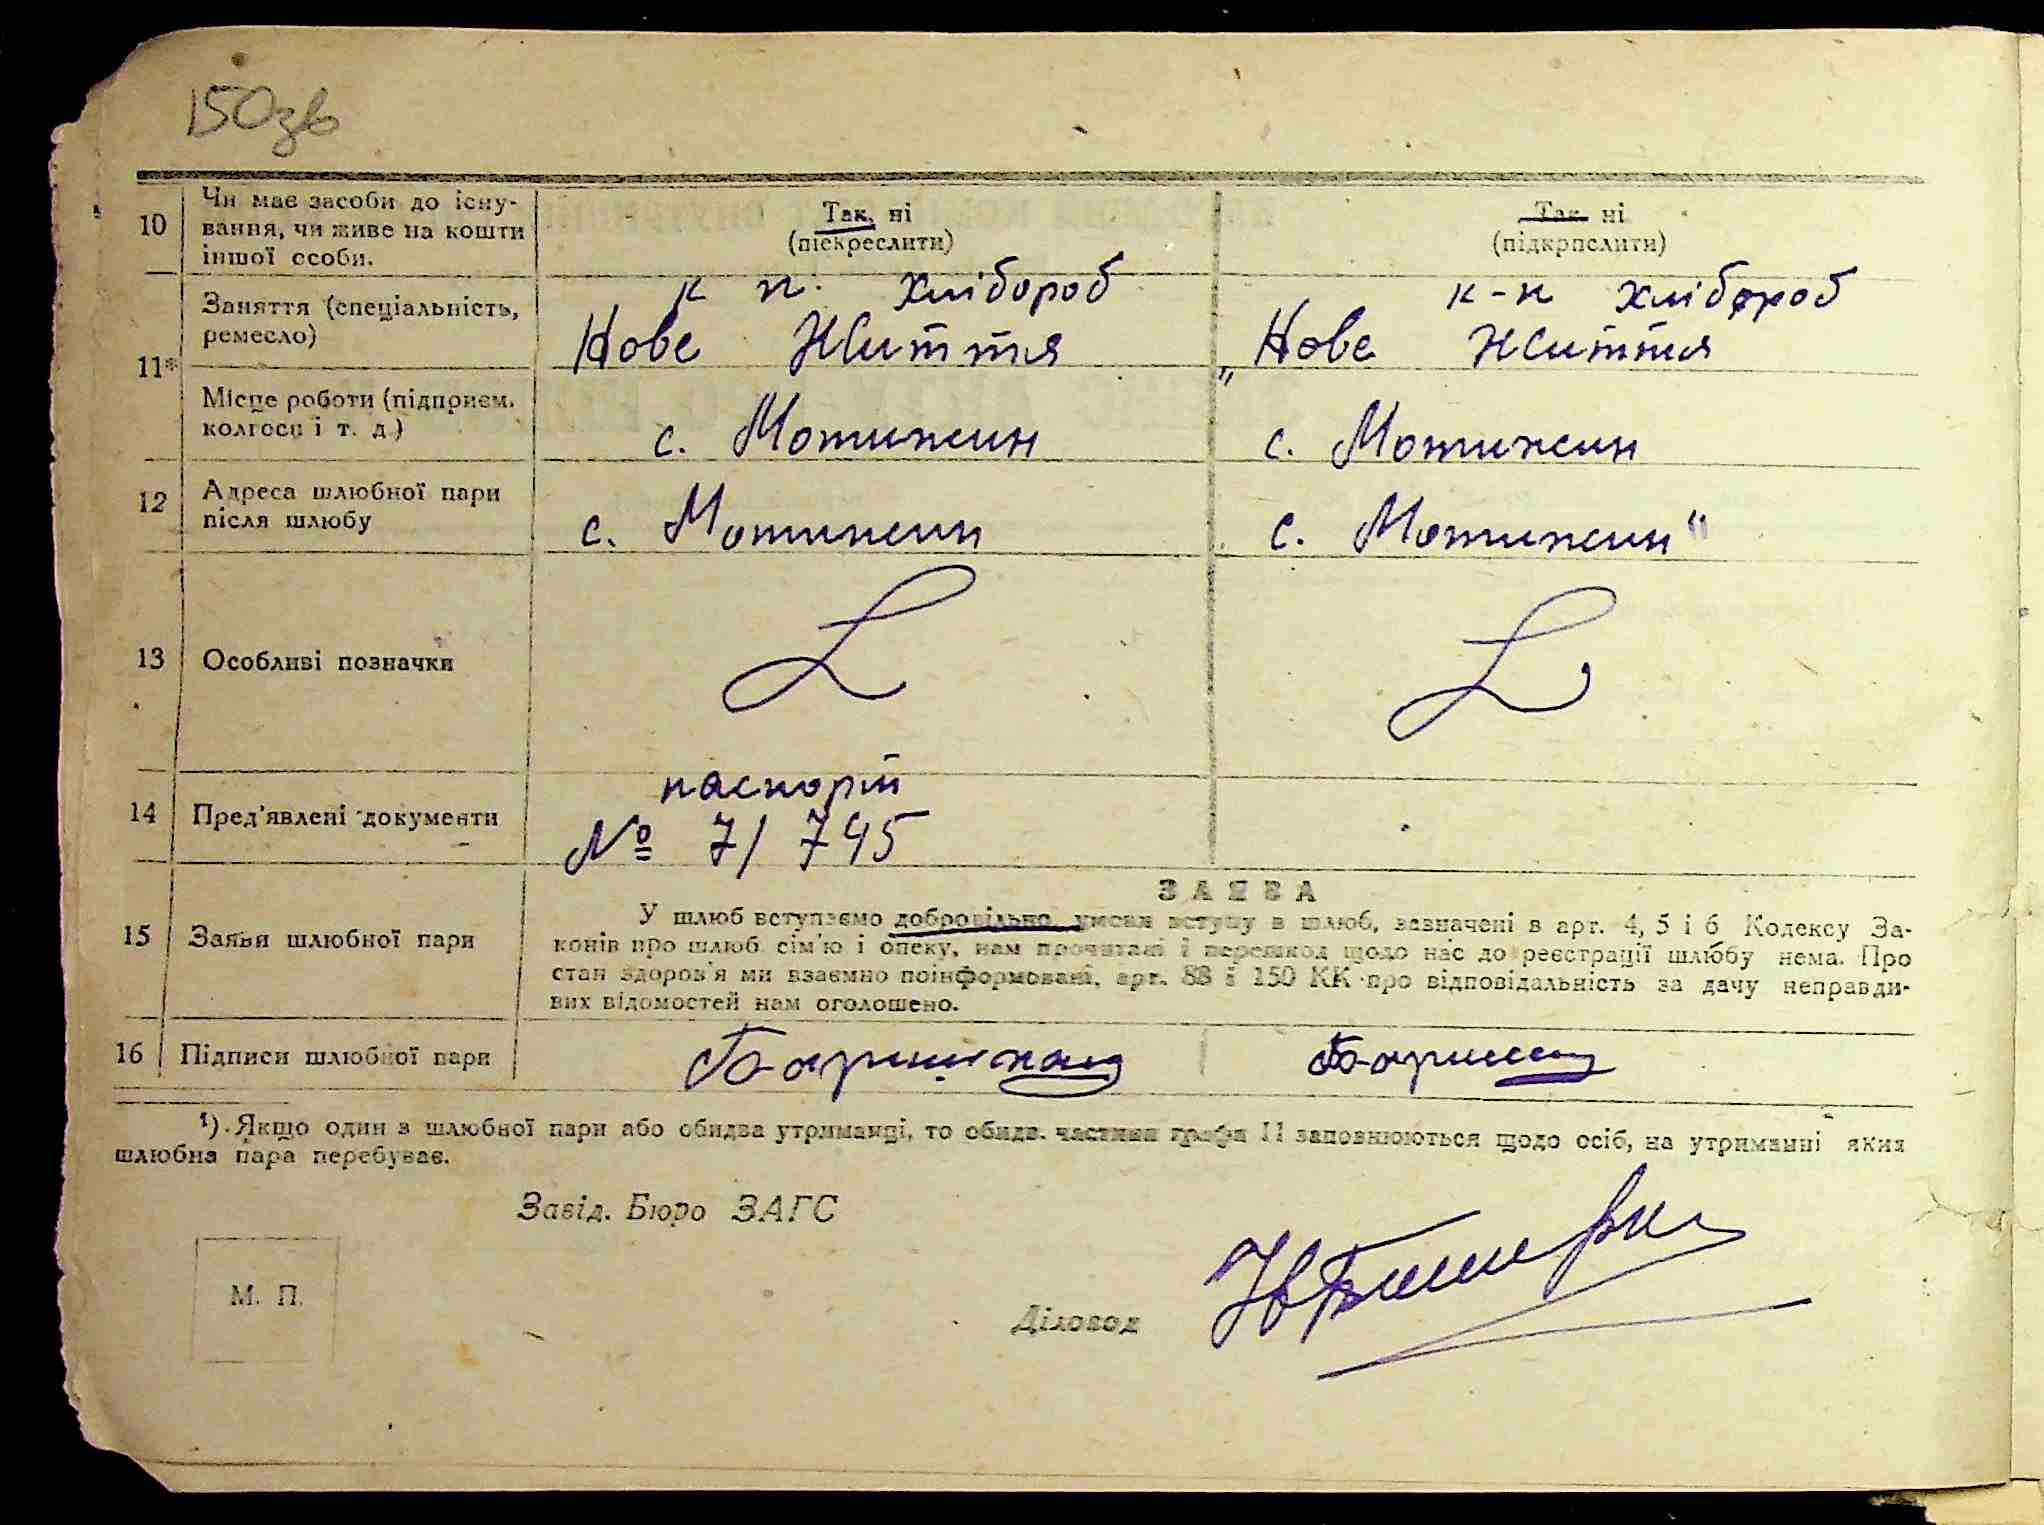 150зв
10 Чи має засоби до існу-
вання, чи живе на кошти
іншої особи.
Так, ні
(підкреслити)
Так ні
(підкреслити)
11* Заняття (спеціальність,
ремесло)
к п. хлібороб
к-п хлібороб
Місце роботи (підприєм.
колгосп і т. д.)
Нове Життя
с. Мотижин
„Нове Життя
с. Мотижин
12 Адреса шлюбної пари
після шлюбу
с. Мотижин
с. Мотижин"
13 Особливі позначки
14 Пред'явлені документи
паспорт
№ 7/745
15 Заяви шлюбної пари
ЗАЯВА
У шлюб вступаємо добровільно, умови вступу в шлюб, зазначені в арт. 4, 5 і 6 Кодексу За-
конів про шлюб сім'ю і опеку, нам прочитані і перешкод щодо нас до реєстрації шлюбу нема. Про
стан здоров'я ми взаємно поінформовані, арт. 88 і 150 КК про відповідальність за дачу неправди-
вих відомостей нам оголошено.
16 Підписи шлюбної пари
¹). Якщо один з шлюбної пари або обидва утриманці, то обидв. частини графи 11 заповнюються щодо осіб, на утриманні яких
шлюбна пара перебуває.
Завід. Бюро ЗАГС
М. П.
Діловод